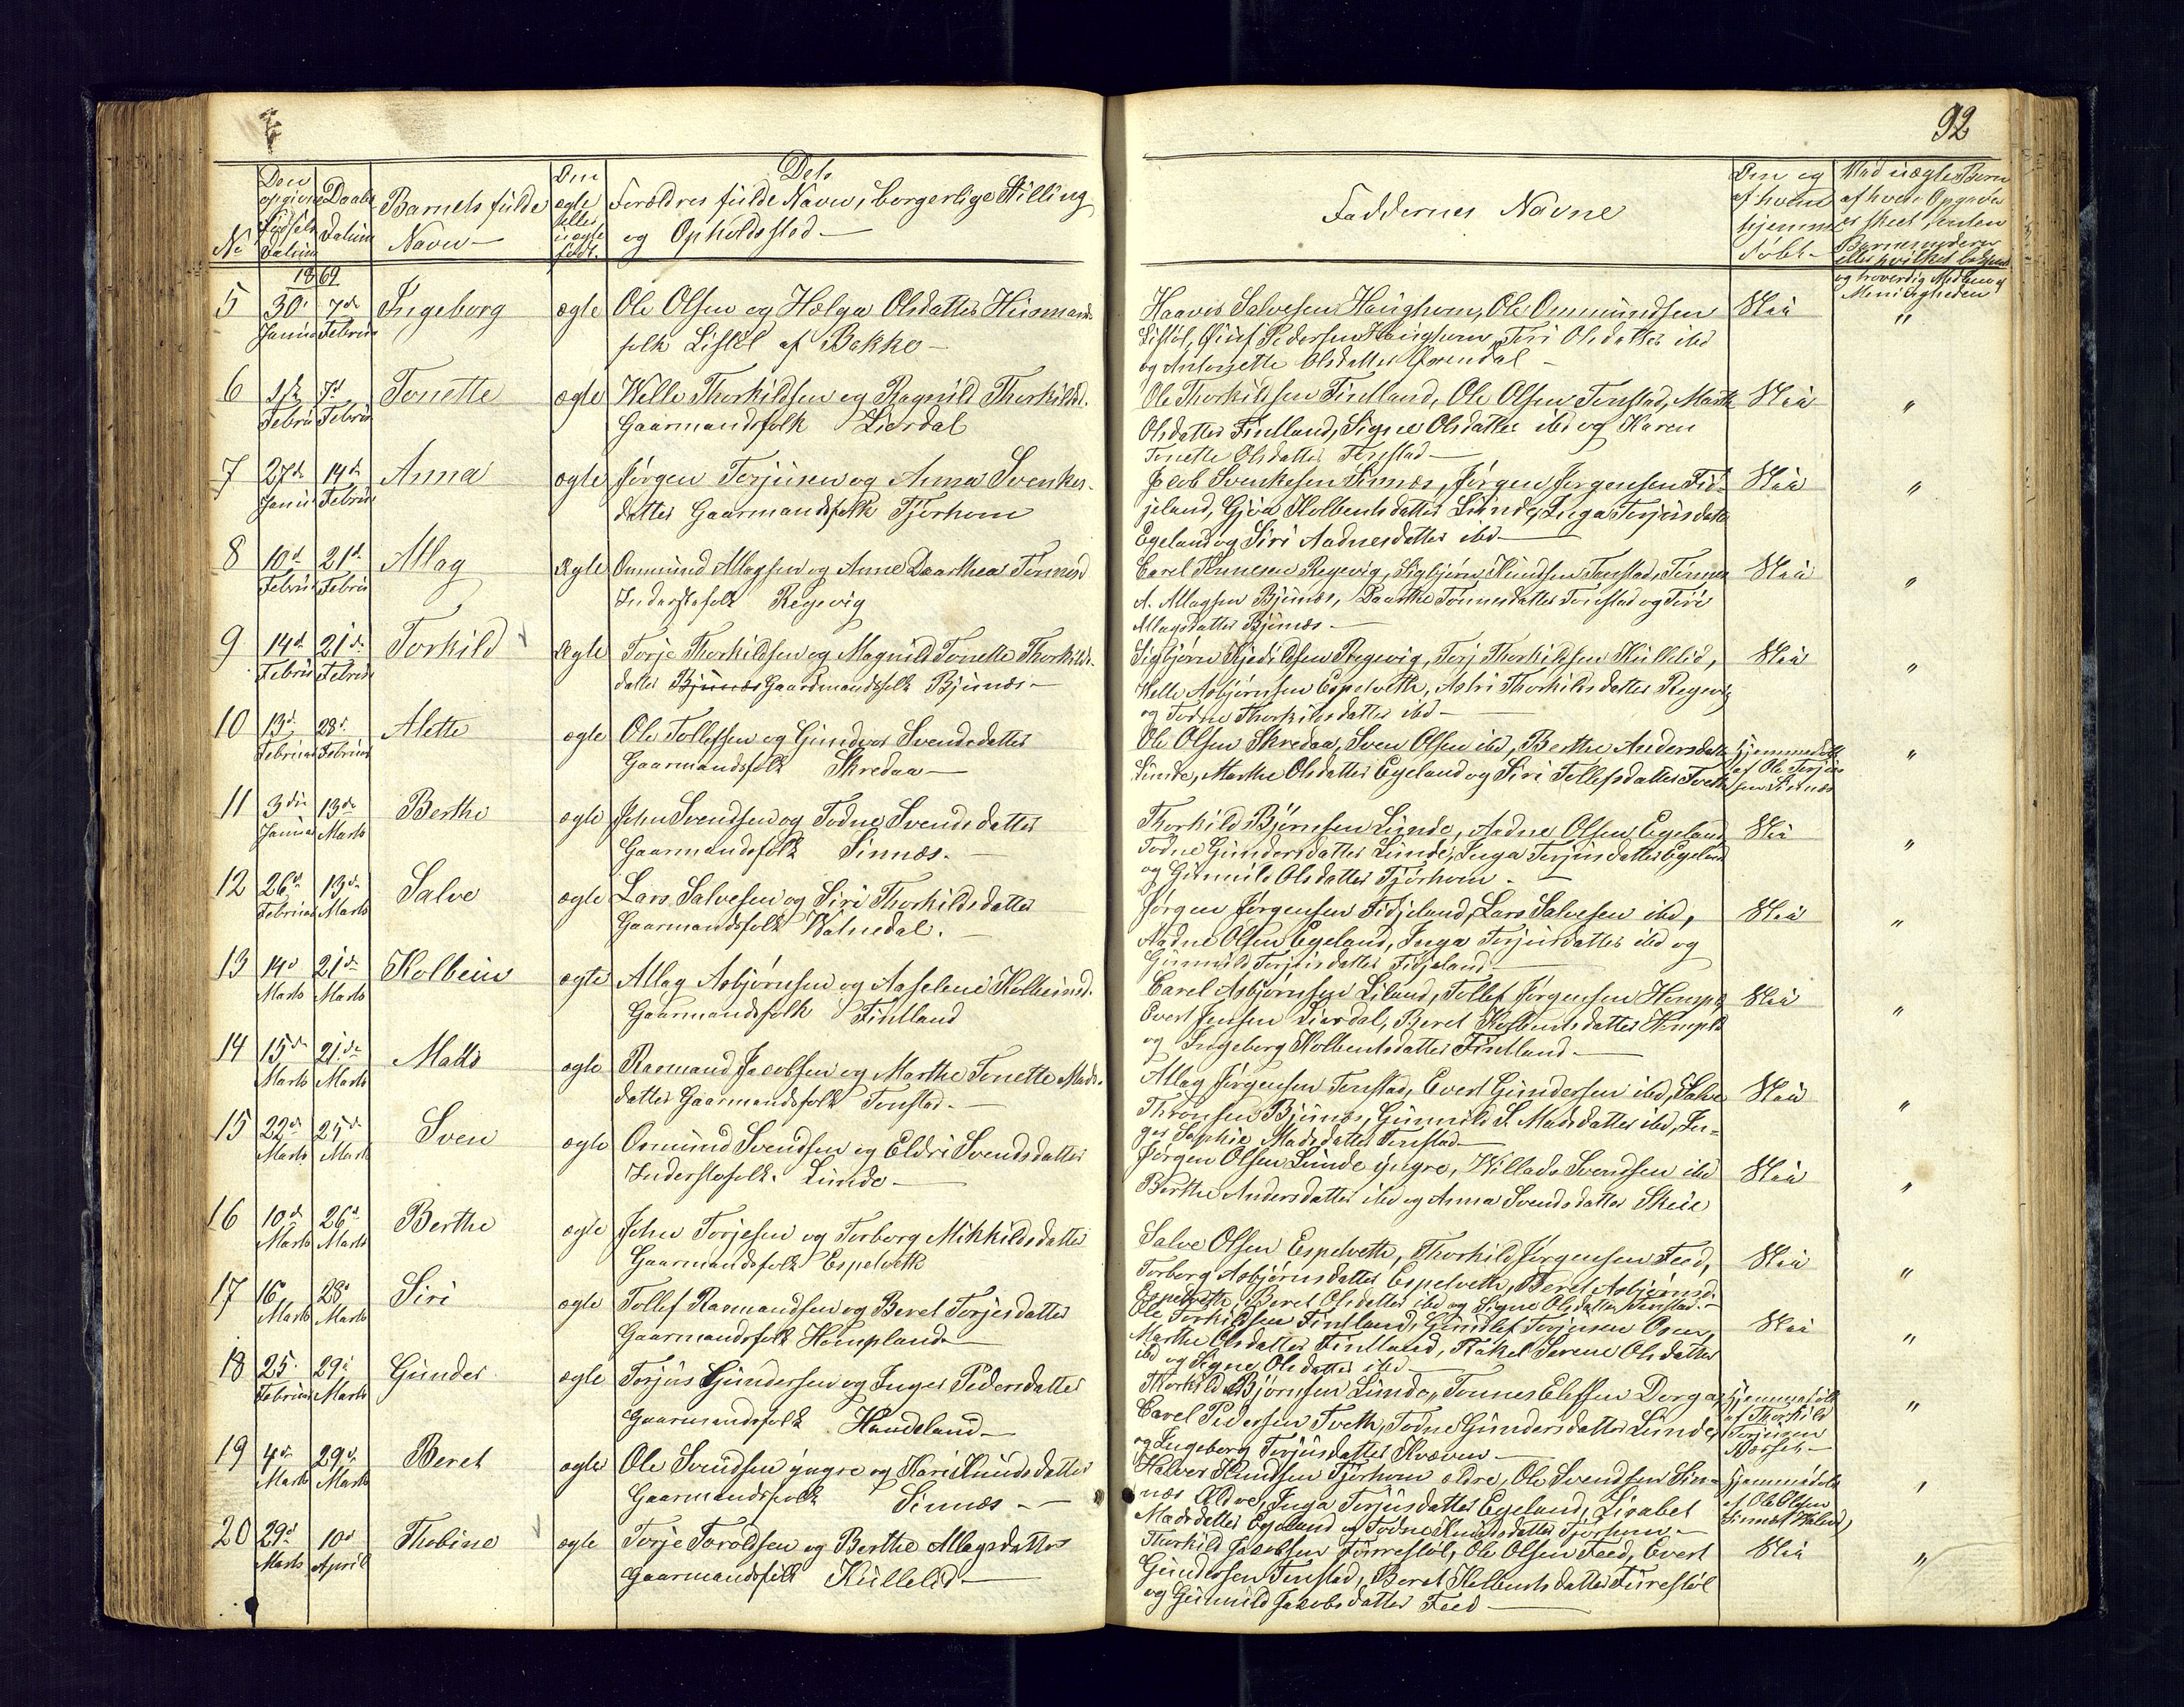 92
No
Den opgivne Fødsels Datum
Daabs Datum
Barnets fulde Navn
Den ægte eller uægte født.
Dets Forældres fulde Navn, borgerlige Stilling og Opholdssted
Faddernes Navne
Om og af hvem hjemmedøbt
1869
og troværdig Medlem af Menigheden
5 30 Janua 7de Februa Ingeborg ægte Ole Olsen og Helga Olsdatter Husmands-
folk Liestøl af Bakke
Haavar Salvesen Haughom, Ole Ommundsen Nei "
Liestøl, Pedersen Haughom, Siri Olsdatter ibd
og Antonette Olsdatter
6 1ste Febru 7d Februa Tonette ægte Welle Thorkildsen og Ragnild Thorkildsd.
Gaarmandsfolk Lierdal
Ole Thorkildsen Fintland, Ole Olsen Tonstad, Marthe Nei "
Olsdatter Fintland, Signe Olsdatter ibd og Karen
Tonette Olsdatter Tonstad
7 27de Janua 14de Februa Anna ægte Jørgen Terjusen og Anna Svenkes-
datter Gaarmandsfolk Tjørhom
Jacob Svenkesen Sinnes, Jørgen Jørgensen Fid- Nei "
jeland, Gjea Kolbentsdatter Lunde, Inga Terjusdatter
Egeland og Siri Aadnesdatter ibd
8 10d Februa 21d Februa Atlag Ægte Ommund Atlagsen og Anne Daarthea Tønnesd
Inderstefolk Regevig
Carel Tønnesen Regevig, Sigbjørn Knudsen Tonstad, Tønnes Nei "
A. Atlagsen Bjunes, Daarthe Tønnesdatter Tonstad og Siri
Atlagsdatter Bjunes
9 14d Februa 21de Februa Torkild Ægte Torje Thorkildsen og Magnild Tonette Thorkilds-
datter Bjunes Gaardmandsfolk Bjunes
Sigbjørn Kjedilsen Regevig, Torj Thorkildsen Kullelid, Nei "
Welle Asbjørnsen Espetveth, Astri Thorkildsdatter Regevig
og Todne Thorkildsdatter ibd
10 13d Februar 28d Februar Alette ægte Ole Tollefsen og Gundver Svendsdatter
Gaarmandsfolk Skredaa
Ole Olsen Skredaa, Sven Olsen ibd, Berthe Andersdatter Hjemmedøbt "
Lunde, Marthe Olsdatter Egeland og Siri Tollefsdatter Tveth af Ole Terjus
sen Sinnes
11 3die Janua 13de Marts Berthe ægte John Svendsen og Todne Svendsdatter
Gaarmandsfolk Sinnæs.
Thorkild Bjørnsen Lunde, Aadne Olsen Egeland, Nei "
Todne Gundersdatter Lunde, Inga Terjusdatter Egeland
og Gunnild Olsdatter Tjørhom
12 26d Februar 13de Marts Salve ægte Lars Salvesen og Siri Thorkildsdatter
Gaarmandsfolk Watnedal.
Jørgen Jørgensen Fidjeland, Lars Salvesen ibd, Nei "
Aadne Olsen Egeland, Inga Terjusdatter ibd og
Gunnild Terjusdatter Fidjeland
13 14d Marts 21de Marts Kolbein ægte Atlag Asbjørnsen og Aaselene Kolbeinsd.
Gaarmandsfolk Fintland
Carel Asbjørnsen Liland, Tollef Jørgensen Hompl. Nei "
Evert Jensen Lierdal, Beret Kolbentsdatter Hompl.
og Ingeborg Kolbentsdatter Fintland.
14 15de Marts 21de Marts Matts ægte Rasmund Jacobsen og Marthe Tonette Mads-
datter Gaarmandsfolk Tonstad.
Atlag Jørgensen Tonstad, Evert Gundersen ibd, Salve Nei "
Thronsen Bjunes, Gunnild S. Madsdatter ibd, In-
ger Sophie Madsdatter Tonstad
15 22de Marts 25de Mart Sven ægte Osmund Svendsen og Eldri Svendsdatter
Inderstefolk. Lunde
Jørgen Olsen Lunde yngre, Willads Svendsen ibd Nei "
Berthe Andersdatter ibd og Anna Svendsdatter Skeie
16 10de Marts 26d Marts Berthe ægte John Torjesen og Torborg Mikkildsdatter
Gaarmandsfolk Espetveth
Salve Olsen Espetveth, Thorkild Jørgensen Feed, Nei "
Torborg Asbjørnsdatter Espetveth, Beret Asbjørnsd.
Espetveth, Beret Olsdatter ibd og Signe Olsdatter Tonstad.
17 16 Marts 28d Marts Siri ægte Tollef Rasmundsen og Beret Torjesdatter
Gaarmandsfolk Hompland
Ole Torkildsen Fintland, Gundlef Torjusen Osen, Nei "
Marthe Olsdatter Fintland, Rakel Serene Olsdatter
ibd og Signe Olsdatter ibd
18 25. Februar 29d Marts Gunder ægte Torjus Gundersen og Inger Pedersdatter
Gaarmandsfolk Handeland
Thorkild Bjørnsen Lunde, Tønnes Elefsen Dorga, Hjemmedøbt "
Carel Pedersen Tveth, Todne Gundersdatter Lunde af Thorkild
og Ingeborg Terjusdatter Kvæven Torjusen
19 4de Marts 29d Marts Beret ægte Ole Svendsen yngre og Kari Knudsdatter
Gaarmandsfolk Sinnes
Halvor Knudsen Tjørhom ældre, Ole Svendsen Sin- Hjemmedøbt "
nes Ældre, Inga Terjusdatter Egeland, Lisabet af Ole Olsen
Madsdatter Egeland og Todne Knudsdatter Tjørhom Sinnes
20 29d Marts 10d April Thobine ægte Torje Toroldsen og Berthe Atlagsdatter
Gaarmandsfolk Kullelid
Thorkild Jacobsen Furrestøl, Ole Olsen Feed, Evert Nei "
Gundersen Tonstad, Beret Kolbentsdatter Furestøl
og Gunnild Jacobsdatter Feed